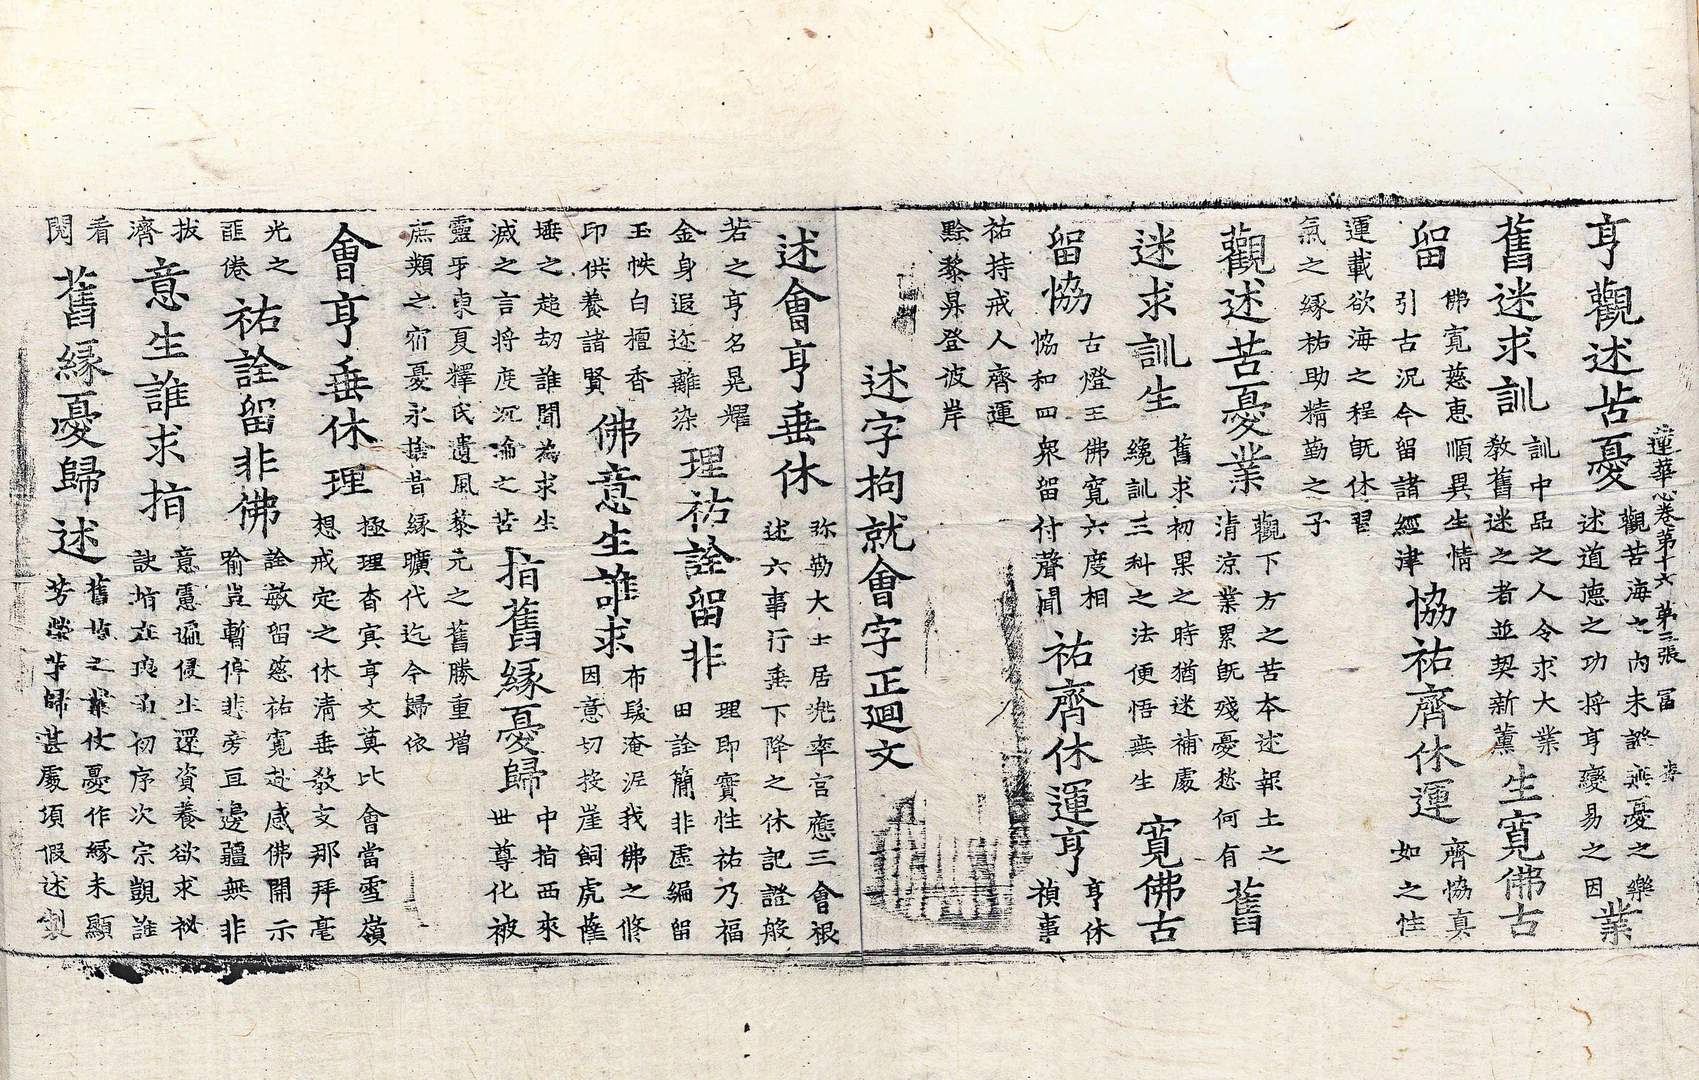 蓮華心卷第十六 第三張 冨
亨觀述苦憂 觀苦海之内未詮無憂之樂
述道德之功将亨變易之因 業
舊迷求訓 訓中品之人令求大業
教舊迷之者並契新薰 生寬佛古
留 佛寬慈恵順異生情
引古況今留諸經津 協祐齊休運 齊協真
如之性
運載欲海之程旣休習
氣之縁祐助精勤之子
觀述苦憂業 觀下方之苦本述報土之
清涼業累旣殘憂愁何有 舊
迷求訓生 舊求初果之時猶迷補處
纔訓三科之法便悟無生 寬佛古
留協 古燈王佛寬六度相
協和四衆留付聲聞 祐齊休運亨 亨休
禎事
祐持戒人齊運
黔黎昇登彼岸
述字拘就會字正廻文
述會亨垂休 弥勒大士居兠率宮應三會根
述六事行垂下降之休記證般
若之亨名晃耀
金身遐迩離染 理祐詮留非 理即實性祐乃福
田詮簡非虛編留
玉帙白檀香
印供養諸賢 佛意生誰求 布髮淹泥我佛之修
因意切投崖飼虎薩
埵之趋劫誰聞為求生
滅之言将度沉淪之苦 指舊縁憂歸 中指西來
世尊化被
靈乎東夏釋氏遺風黎元之舊勝重増
庶類之宿憂永捨昔縁曠代迄今歸依
會亨垂休理 極理杳冥亨文莫比會當雪嶺
想戒定之休清垂教支那拜毫
光之
匪倦 祐詮留非佛 詮敬留慈祐寛赴感佛開示
喻豈暫停非旁亘邊疆無非
拔
濟 意生誰求指 意 遍侵生還資養欲求祕
訣指在 函初序次宗凱誰
看
閱 舊縁憂歸述 舊指之業仗憂作縁未顯
芳榮 歸甚處項假述製